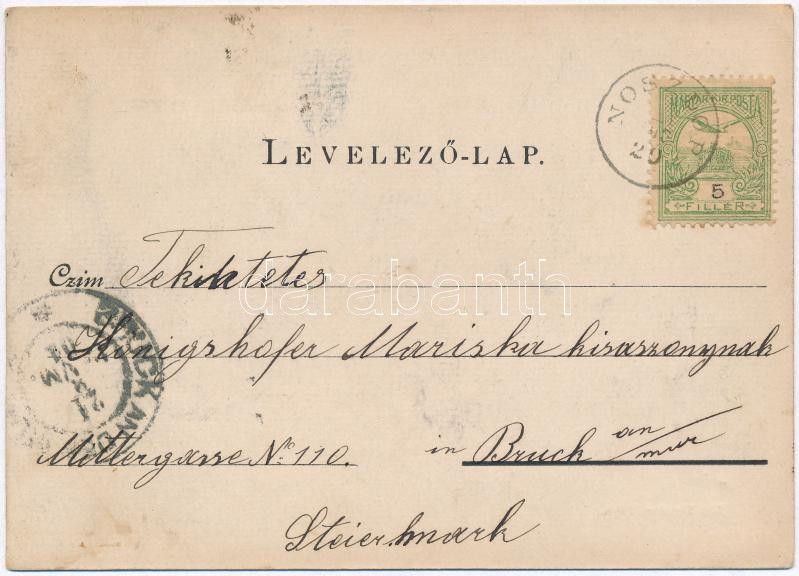 LEVELEZŐ-LAP.
MAGYAR KIR. POSTA
5
FILLÉR
NOSZLOP
20
Czim Tekintetes
Königshofer Mariska kisaszonynak
Mittergasse No. 110. in Bruck an/mur
Steiermark
BRUCK AN DER
21
8 V.M
darabanth